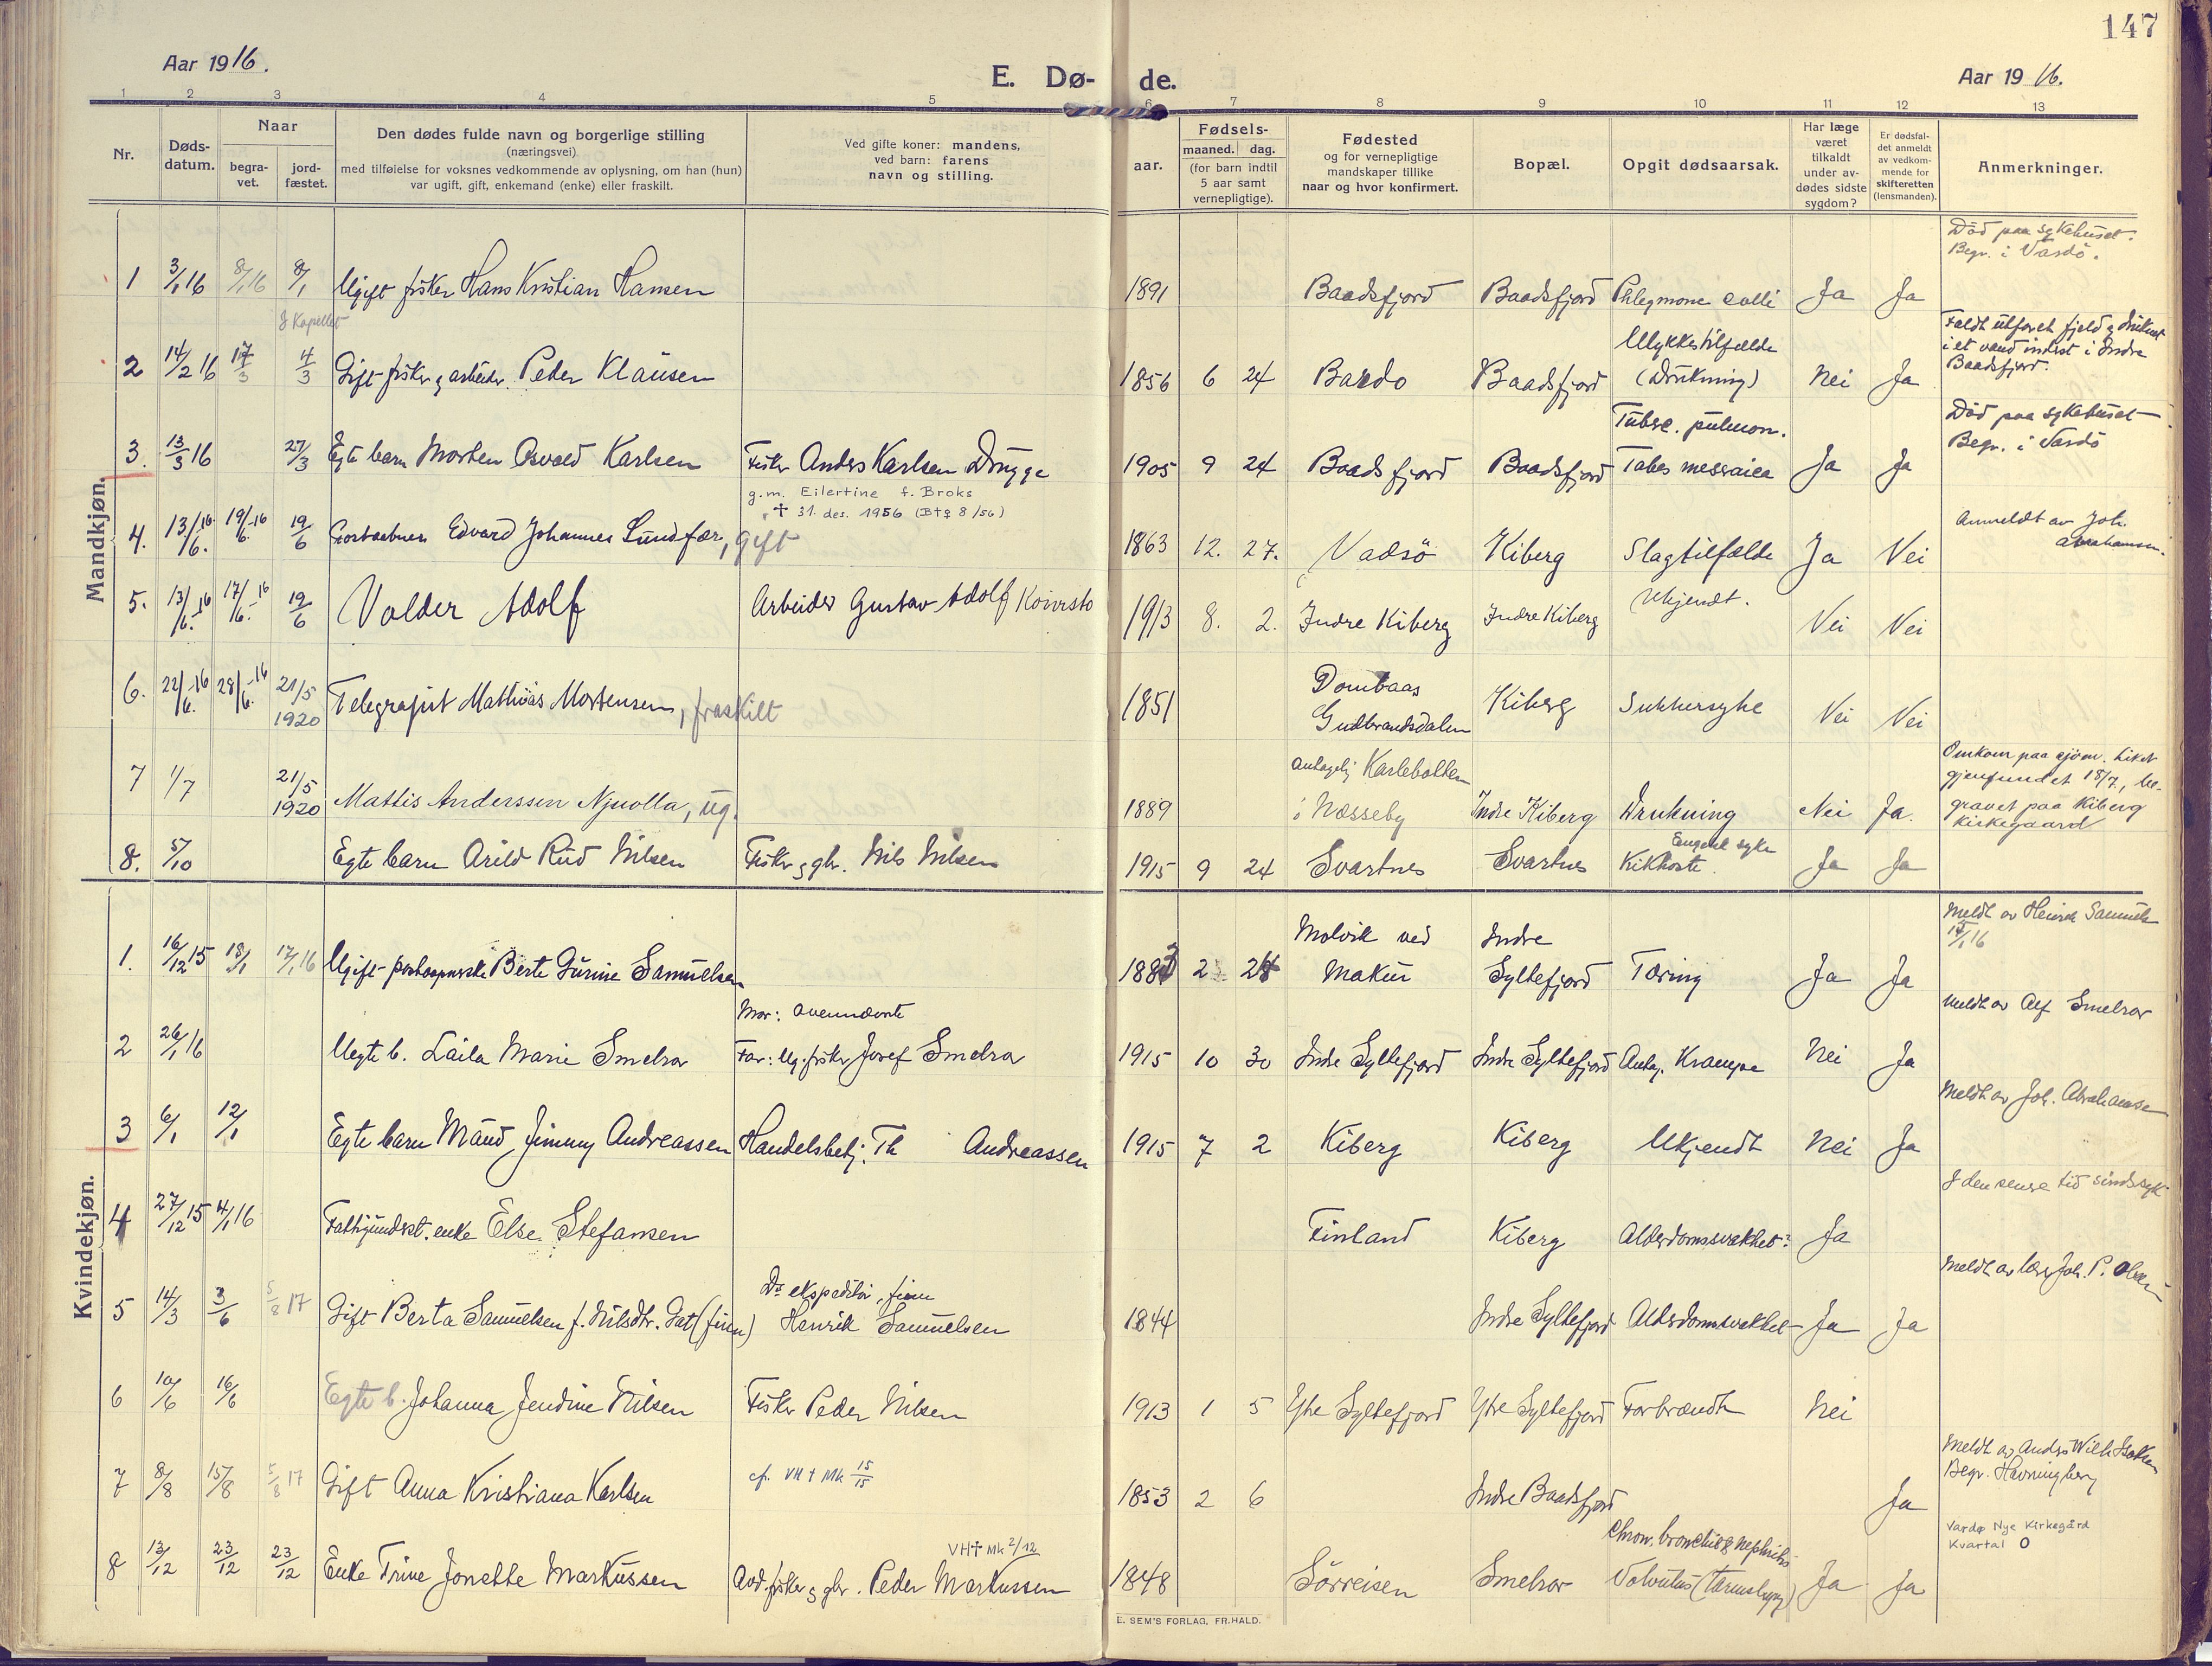 147
Aar 1916.
E. Dø- de.
Aar 1916.
1 2 3 4 5 6 7 8 9 10 11 12 13
Nr.
Døds-
datum.
Naar
begra-
vet.
jord-
fæstet.
Den dødes fulde navn og borgerlige stilling
(næringsvei)
med tilføielse for voksnes vedkommende av oplysning, om han (hun)
var ugift, gift, enkemand (enke) eller fraskilt.
Ved gifte koner: mandens,
ved barn: farens
navn og stilling.
aar.
Fødsels-
maaned. dag.
(for barn indtil
5 aar samt
vernepligtige).
Fødested
og for vernepligtige
mandskaper tillike
naar og hvor konfirmert.
Bopæl.
Opgit dødsaarsak.
Har læge
været
tilkaldt
under av-
dødes sidste
sygdom?
Er dødsfal-
det anmeldt
av vedkom-
mende for
skifteretten
(lensmanden).
Anmerkninger.
Mandkjøn.
Død paa sykehuset.
Begr. i Vardö.
1 3/1 16 8/1 16 8/1 Ugift fisker Hans Kristian Hansen 1891 Baadsfjord Baadsfjord Phlegmone colli Ja Ja
I Kapellet
Faldt utfor et fjeld & druknet
i et vand inderst i Indre
Baadsfjord.
Ulykkestilfælde
2 14/2 16 17/3 4/3 Gift fisker & arbeider Peder Klausen 1856 6 24 Bardo Baadsfjord (Drukning) Nei Ja
Død paa sykehuset
Begr. i Vardö
Tuberc. pulmon.
3. 13/3 16 27/3 Egte barn Morten Osvald Karlsen Fisker Anders Karlsen Drygge 1905 9 24 Baadsfjord Baadsfjord Tabes mesraica Ja Ja
g.m. Eilertine f. Broks
† 31. des. 1956 (B†g 8/56)
Anmeldt av Joh.
Abrahamsen.
4. 13/6.16 19/6.-16 19/6 Postaabner Edvard Johannes Lundfær, gift 1863 12. 27. Vadsö Kiberg Slagtilfælde Ja Nei
5. 13/6.16 17/6.-16 19/6 Valder Adolf Arbeider Gustav Adolf Koivisto 1913 8. 2. Indre Kiberg Indre Kiberg Ukjendt. Nei Nei
6. 22/6.16 28/6.-16 21/5 1920 Telegrafist Mathias Mortensen, fraskilt 1851 Dombaas Gudbrandsdalen Kiberg Sukkersyke Nei Nei
Omkom paa sjöen. Liket
gjenfundet 18/7, be-
gravet paa Kiberg
kirkegaard
antagelig Karlebotten
7 1/7 21/5 1920 Mattis Anderssen Njuolla, ug. 1889 i Næsseby Indre Kiberg Drukning Nei Ja.
Engelsk syke
8. 5/10 Egte barn Arild Rud Nilsen Fisker & gbr. Nils Nilsen 1915 9 24 Svartnes Svartnes Kikhoste Ja Ja
Kvindekjøn.
Meldt av Henrik Samuels
15/1 16
1. 16/12 15 18/1 17/1 16 Ugift postaapnerske Berte Gurine Samuelsen 1883 2 28 Molvik ved Makur Indre Syltefjord Tæring Ja Ja
Mor: ovennævnte
Meldt av Alf Smelror
2 26/1 16 Uegte b. Laila Marie Smelror Far: Ug. fisker Josef Smelror 1915 10 30 Indre Syltefjord Indre Syltefjord Antag. Krampe Nei Ja
Meldt av Joh. Abrahamse
3 6/1 12/1 Egte barn Maud Jimmy Andreassen Handelsbetj. Th Andreassen 1915 7 2 Kiberg Kiberg Ukjendt Nei Ja
I den senere tid sindssyk
4 27/12 15 4/1 16 Fattigunderst. enke Else Stefansen Finland Kiberg Alderdomssvakhet? Ja
Meldt av lærer Joh. P. Olsen
Ds. ekspeditör, finn
5 14/3 3/6 5/8 17 Gift Berta Samuelsen f. Nilsdtr. Gat (finn) Henrik Samuelsen 1844 Indre Syltefjord Alderdomssvakhet Ja Ja
6 10/6 16/6 Egte b. Johanna Jendine Nilsen Fisker Peder Nilsen 1913 1 5 Ytre Syltefjord Ytre Syltefjord Forbrændt Nei
Meldt av Anders Wilh. Isaksen
Begr. Havningberg
7 8/8 15/8 5/8 17 Gift Anna Kristiana Karlsen cf. VH † Mk 15/15 1853 2 6 Indre Baadsfjord Ja
Vardø Nye Kirkegård
Kvartal O
VH† Mk 2/12
Chron. bronchit & nephritis
8 13/12 23/12 23/12 Enke Trine Jonette Markussen Avd. fisker & gbr. Peder Markussen 1848 Sörreisen Smelror Volvulus (tarmslyng) Ja Ja
E. SEM'S FORLAG, FR.HALD.